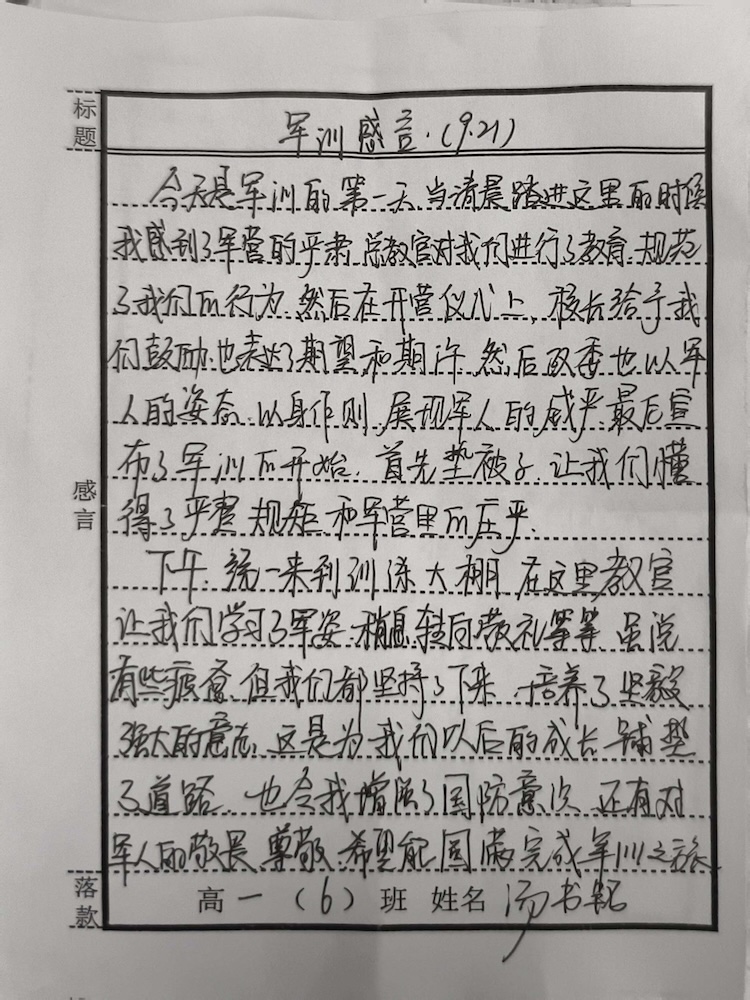 标题
军训感言.(9.21)
今天是军训的第一天.当清晨踏进这里的时候
我感到了军营的严肃.总教官对我们进行了教育.规范
了我们的行为.然后在开营仪式上,校长给予我
们鼓励.也表达了期望和期许.然后政委也以军
人的姿态.以身作则.展现军人的威严.最后宣
布了军训的开始.首先垫被子.让我们懂
得了严肃规矩和军营里的庄严.
感言
下午.统一来到训练大棚.在这里教官
让我们学习了军姿.稍息.转向.敬礼等等.虽说
有些疲惫.但我们都坚持了下来.培养了坚毅
强大的意志.这是为我们以后的成长铺垫
了道路.也令我增强了国防意识.还有对
军人的敬畏.尊敬.希望能圆满完成军训之旅.
落款
高一(6)班 姓名 汤书